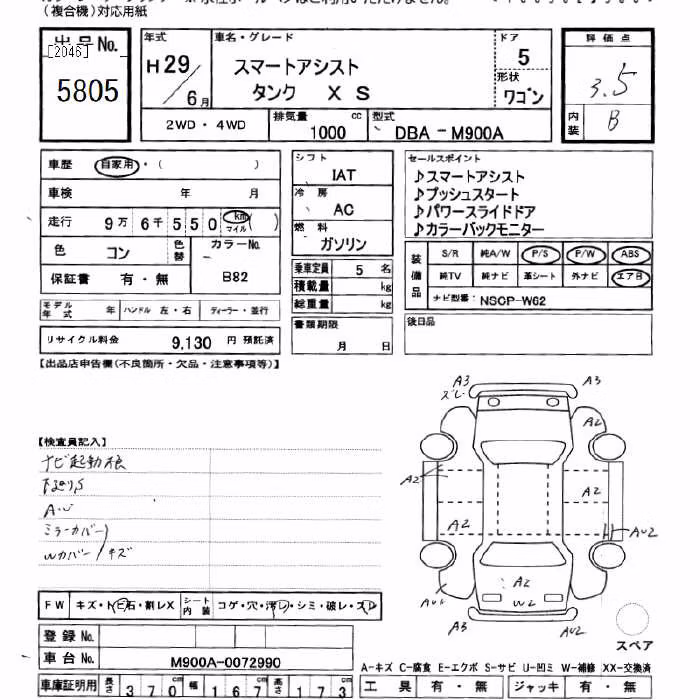 (複合機)対応用紙
出品No. 年式 車名・グレード ドア 評価点
[2046]
5805
H29 / 6月 スマートアシスト 5 3.5
タンク X S 形状 ワゴン 内装 B
2WD・4WD 排気量 1000 cc 型式 DBA-M900A
車歴 自家用・( ) シフト IAT セールスポイント
♪スマートアシスト
♪プッシュスタート
♪パワースライドドア
♪カラーバックモニター
車検 年 月 冷房 AC
走行 9万6千550 km マイル ( ) 燃料 ガソリン
色 コン 色替 カラーNo. B82
保証書 有・無
乗車定員 5 名
積載量 kg
総重量 kg
装備品 S/R 純A/W P/S P/W ABS
純TV 純ナビ 革シート 外ナビ エアB
ナビ型番: NSCP-W62
モデル年式 年 ハンドル 左・右 ディーラー・並行
書類期限 月 日
後日品
リサイクル料金 9,130 円 預託済
【出品店申告欄(不良箇所・欠品・注意事項等)】
【検査員記入】
ナビ起動
ミラーカバー
Wカバー キズ
A3 A3
ズレ
A2
A2
A2
A2
AU2
A2
W2
A3 AU2
FW キズ・トビ石・割レX シート内装 コゲ・穴・汚レ・シミ・破レ・スレ
登録No.
車台No. M900A-0072990
スペア
A-キズ C-腐食 E-エクボ S-サビ U-凹ミ W-補修 XX-交換済
車庫証明用 長さ 370cm 幅 167cm 高さ 173 工具 有・無 ジャッキ 有・無